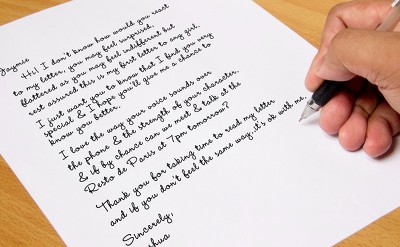 Jaymie
Hi! I don't know how would you react
to my letter, you may feel surprised,
flattered as you may feel indifferent but
rest assured this is my first letter to any girl.
I just want you to know that I find you very
special & I hope you'll give me a chance to
know you better.
I love the way your voice sounds over
the phone & the strength of your character,
& if by chance can we meet & talk at the
Resto de Paris at 7pm tomorrow?
Thank you for taking time to read my letter
and if you don't feel the same way, it's ok with me.
Sincerely,
hua